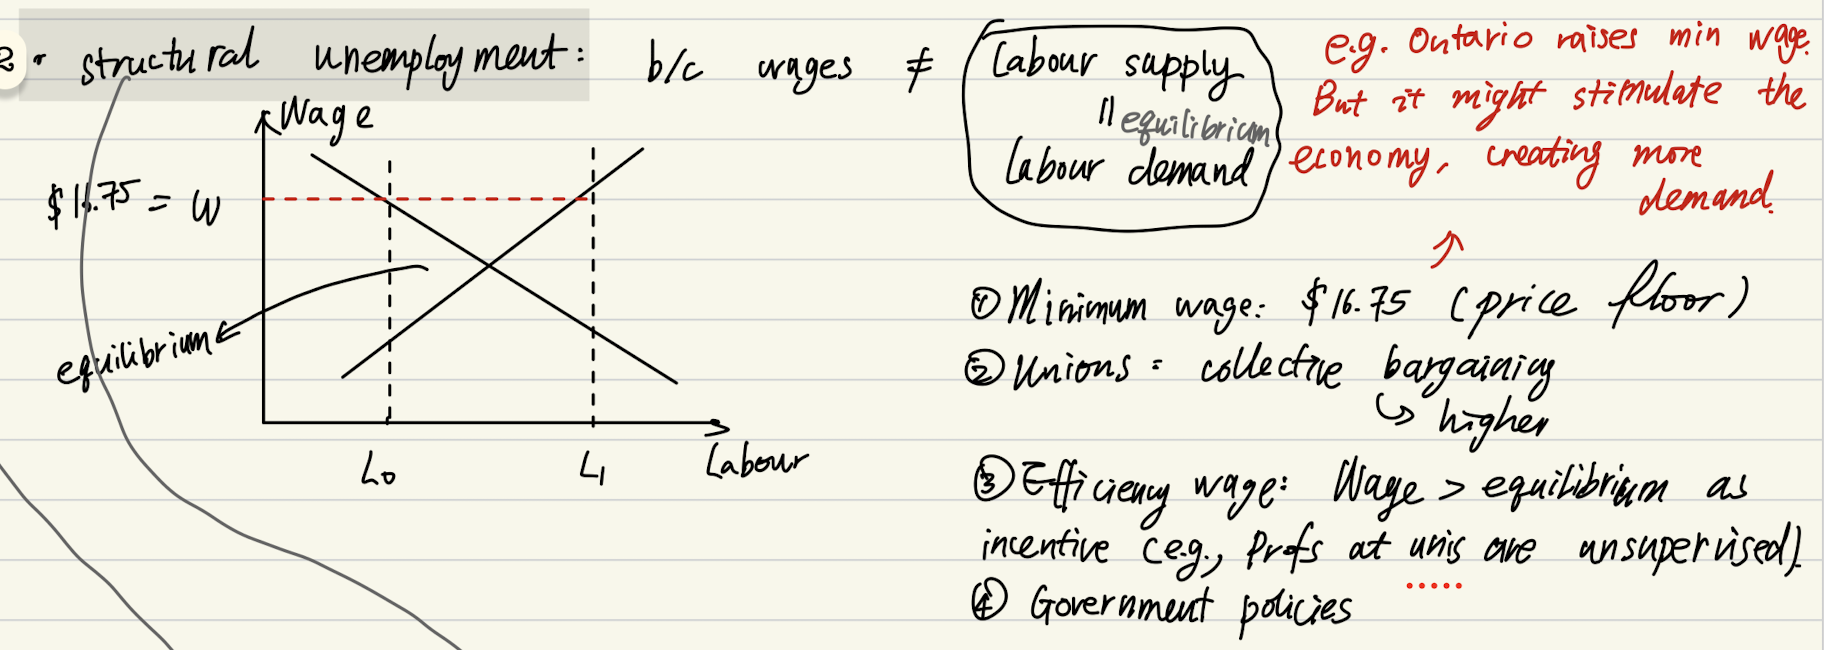 2. structural unemployment: b/c wages ≠ Labour supply
|| equilibrium
Labour demand
e.g. Ontario raises min wage.
But it might stimulate the
economy, creating more
demand.
Wage
$16.75 = W
equilibrium
L0 L1 Labour
① Minimum wage: $16.75 (price floor)
② Unions: collective bargaining
↳ higher
③ Efficiency wage: Wage > equilibrium as
incentive (e.g., Profs at unis are unsupervised)
④ Government policies